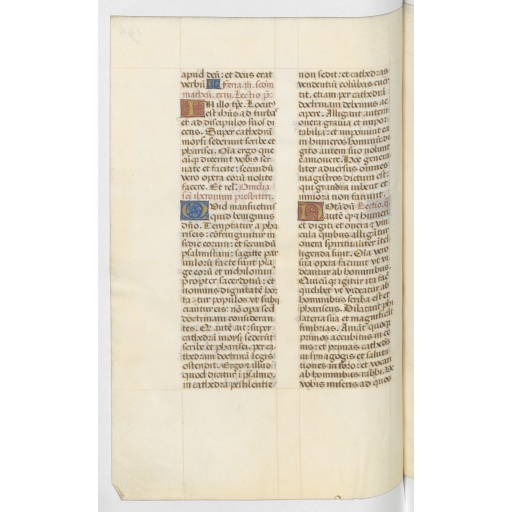 apud deū: et deus erat
verbū Feria.iii. secūm
matheū. xxiii. Lectio p̄.
IN illo tp̄e. Locutꝰ
est ihūs ad turbas
et ad discipulos suos di
cens. Super cathedrā
moysi sederunt scribe et
pharisei. Oīa ergo que
cūq̄ dixerint vobis ser
uate et facite: secundū
vero opera eorū nolite
facere. Et rel̄. Omelia
sc̄i iheronimi presbiteri.
Quid mansuetius
quid benignius
dn̄o. Temptatur a pha
riseis: cōfringuntur in
sidie eorum: et secundū
psalmistam: sagitte par
uulorū facte sunt pla
ge eorū: et nichilomin
propter sacerdotiū: et
nominis dignitatē hor
tatur populos vt subii
ciantur eis: nō opera sed
doctrinam consideran
tes. Q̄ autē ait: super
cathedrā moysi sederūt
scribe et pharisei. per ca
thedram doctrinā legis
ostendit. Ergo et illud
quod dicitur ī psalmo.
in cathedra pestilentie
non sedit: et cathedras
vendentiū colūbas euer
tit. etiam per cathedrā
doctrinam debemus ac
cipere. Alligant autem
onera grauia et impor
tabilia: et imponunt ea
in humeros hominū: di
gito autem suo nolunt
ea mouere. Hoc genera
liter aduersus omnes
magistros dictum est:
qui grandia iubent et
minora non faciunt.
Notādū Lectio.
autē q̄ et humeri
et digiti et onera et vin
cula quibus alligātur
onera spiritualiter itel
ligenda sunt. Oīa vero
sua opera faciunt vt vi
deantur ab hominibus.
Quicūq̄ igitur ita fac
quelibet vt videatur ab
hominibus scriba est et
phariseus. Dilatant phi
lateria sua et magnificāt
fimbrias. Amāt quoq̄
primos accubitus in ce
nis: et primas cathedras
in synagogis et saluta
tiones in foro: et vocari
ab hominibus rabbi. Ve
vobis miseris ad quos